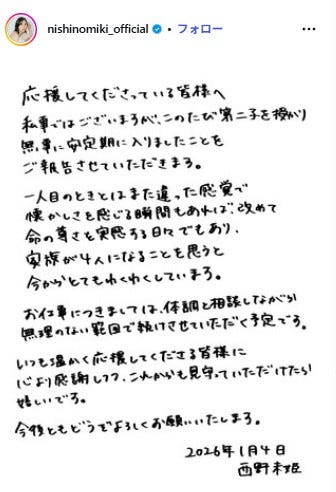 nishinomiki_official • フォロー
応援してくださっている皆様へ
私事ではございますが、このたび第二子を授かり
無事に安定期に入りましたことを
ご報告させていただきます。
一人目のときとはまた違った感覚で
懐かしさを感じる瞬間もあれば、改めて
命の尊さを実感する日々でもあり、
家族が4人になることを思うと
今からとてもわくわくしています。
お仕事につきましては、体調と相談しながら
無理のない範囲で続けさせていただく予定です。
いつも温かく応援してくださる皆様に
心より感謝しつつ、これからも見守っていただけたら
嬉しいです。
今後ともどうぞよろしくお願いいたします。
2026年1月4日
西野未姫